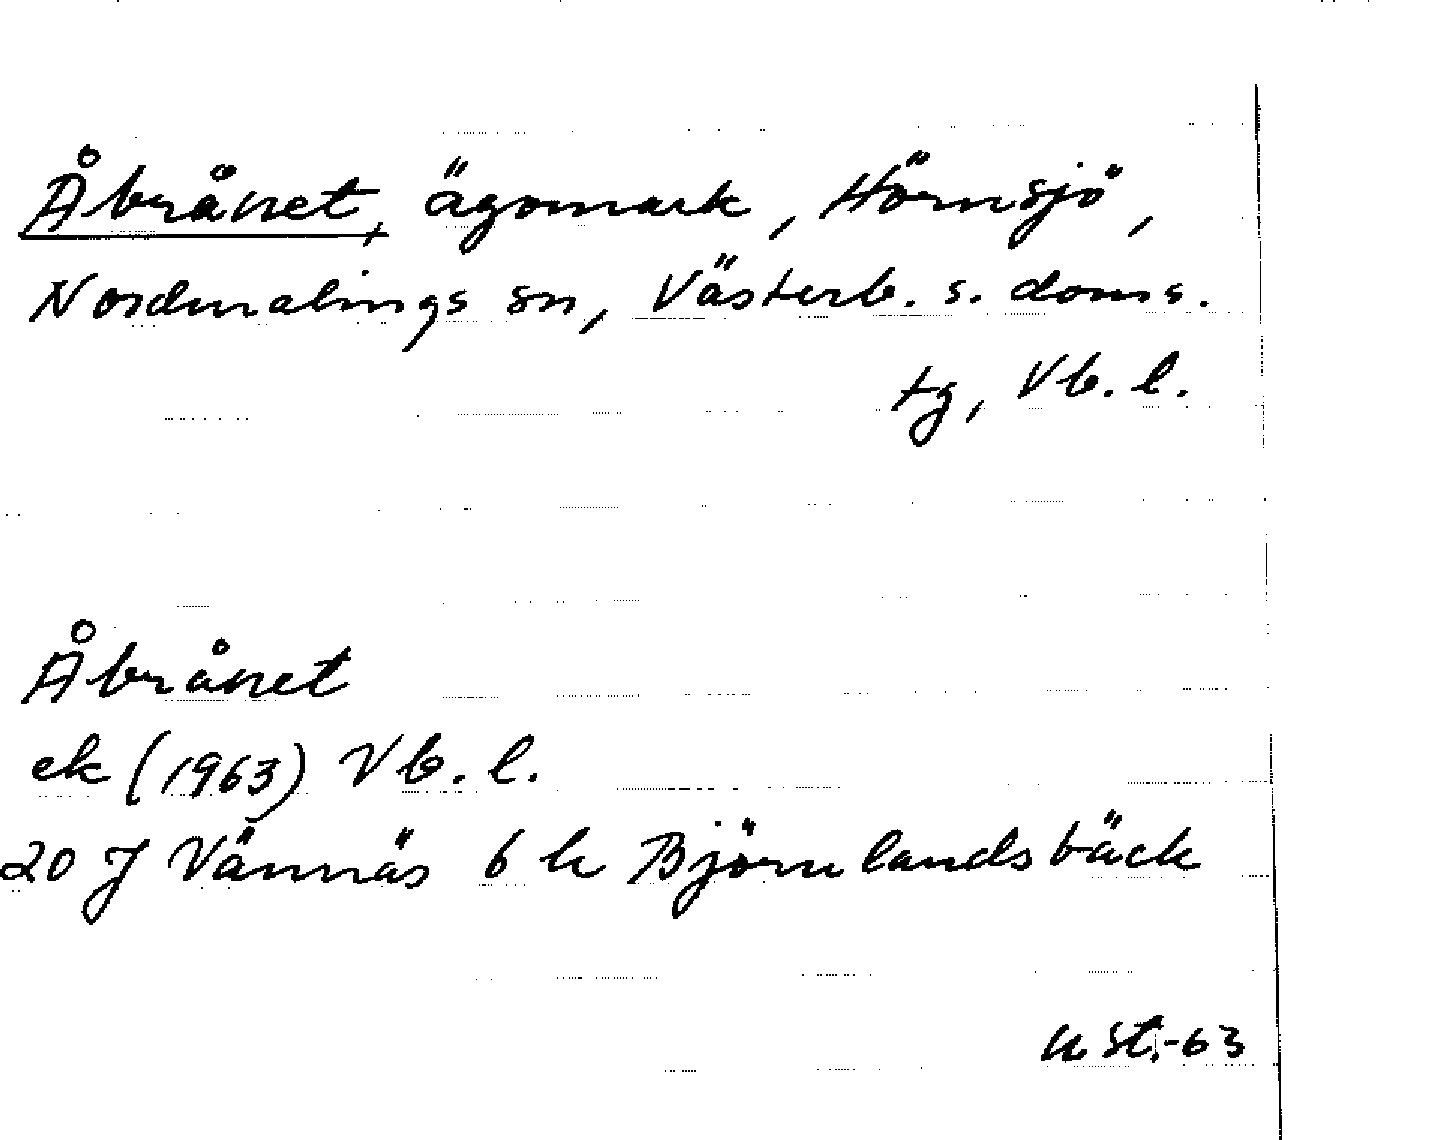 Åbrånet, ägomark, Hörnsjö,
Nordmalings sn, Västerb. s. doms.
tg, Vb. l.
Åbrånet
ek (1963) Vb. l.
20 J Vännäs 6 h Björnlandsbäck
u St.-63